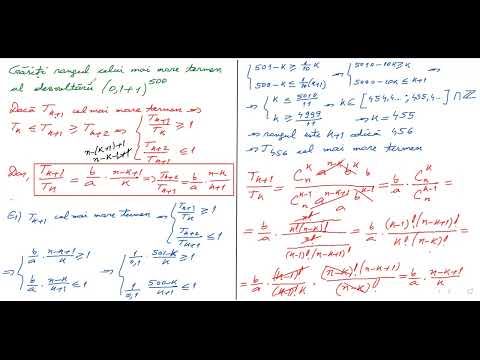 Găsiți rangul celui mai mare termen
al dezvoltării (0,1+1)^500
Dacă T_{k+1} cel mai mare termen ⇒
T_k ≤ T_{k+1} ≥ T_{k+2} ⇒ { T_{k+1}/T_k ≥ 1
T_{k+2}/T_{k+1} ≤ 1
n-(k+1)+1
n-k-1+1
Dar, T_{k+1}/T_k = b/a · (n-k+1)/k ⇒ T_{k+2}/T_{k+1} = b/a · (n-k)/(k+1)
E1) T_{k+1} cel mai mare termen ⇒ { T_{k+1}/T_k ≥ 1
T_{k+2}/T_{k+1} ≤ 1
⇒ { b/a · (n-k+1)/k ≥ 1 ⇒ { 1/0,1 · (501-k)/k ≥ 1
b/a · (n-k)/(k+1) ≤ 1 1/0,1 · (500-k)/(k+1) ≤ 1
⇒ { 501-k ≥ 1/10 k ⇒ { 5010-10k ≥ k
500-k ≤ 1/10 (k+1) 5000-10k ≤ k+1
⇒ { k ≤ 5010/11 ⇒ k ∈ [454,4..; 455,4..] ∩ ℤ
k ≥ 4999/11 ⇒ k = 455
⇒ rangul este k+1 adică 456
⇒ T_456 cel mai mare termen
T_{k+1}/T_k = (C_n^k a^{n-k} b^k)/(C_n^{k-1} a^{n-k+1} b^{k-1}) = b/a · C_n^k/C_n^{k-1} =
= b/a · (n!/(k!(n-k)!))/(n!/((k-1)!(n-k+1)!)) = b/a · ((k-1)!(n-k+1)!)/(k!(n-k)!) =
= b/a · (k-1)!/((k-1)! k) · ((n-k)!(n-k+1))/(n-k)! = b/a · (n-k+1)/k